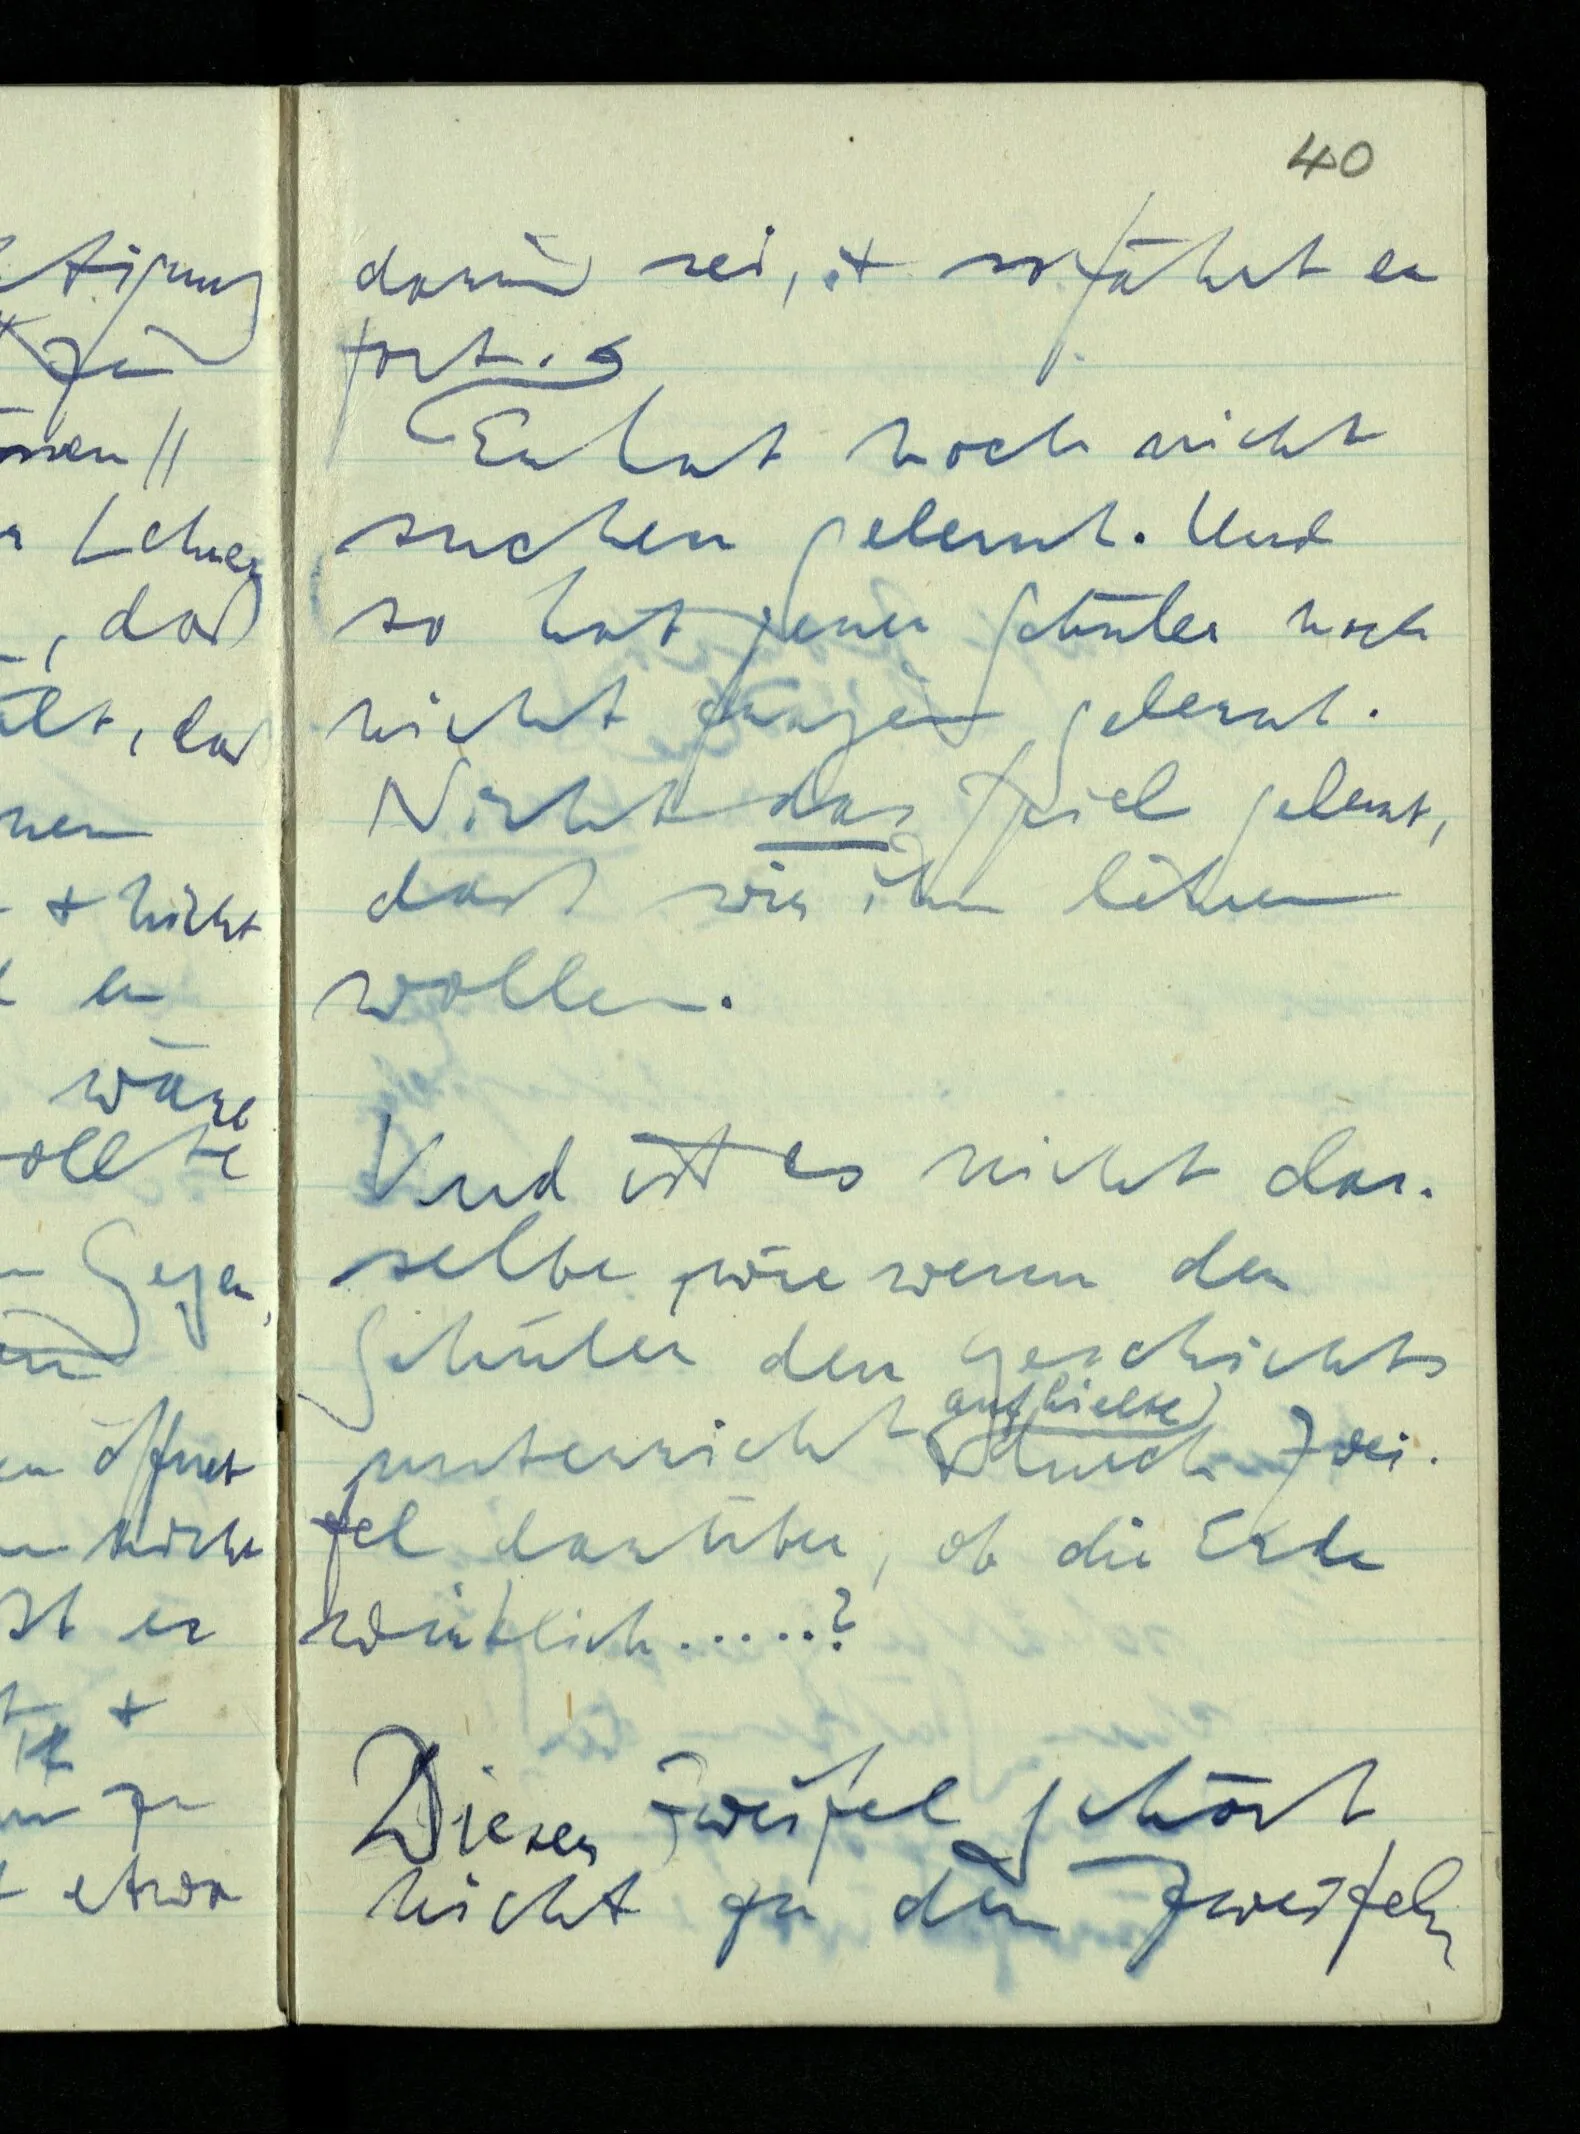 40
darin sei, & so fährt er
fort.
Er hat noch nicht
suchen gelernt. Und
so hat jener Schüler noch
nicht fragen gelernt.
Nicht das Spiel gelernt,
das wir ihn lehren
wollen.
Und ist es nicht das-
selbe, wie wenn der
Schüler den Geschichts
aufhielte
unterricht durch Zwei-
fel darüber, ob die Erde
wirklich.....?
Dieser Zweifel gehört
nicht zu den Zweifeln
tigung
zu
Lehrer
, das
, das
& nicht
er
wäre
ollte
Gegen
öffnet
nicht
st er
&
zu
etwa